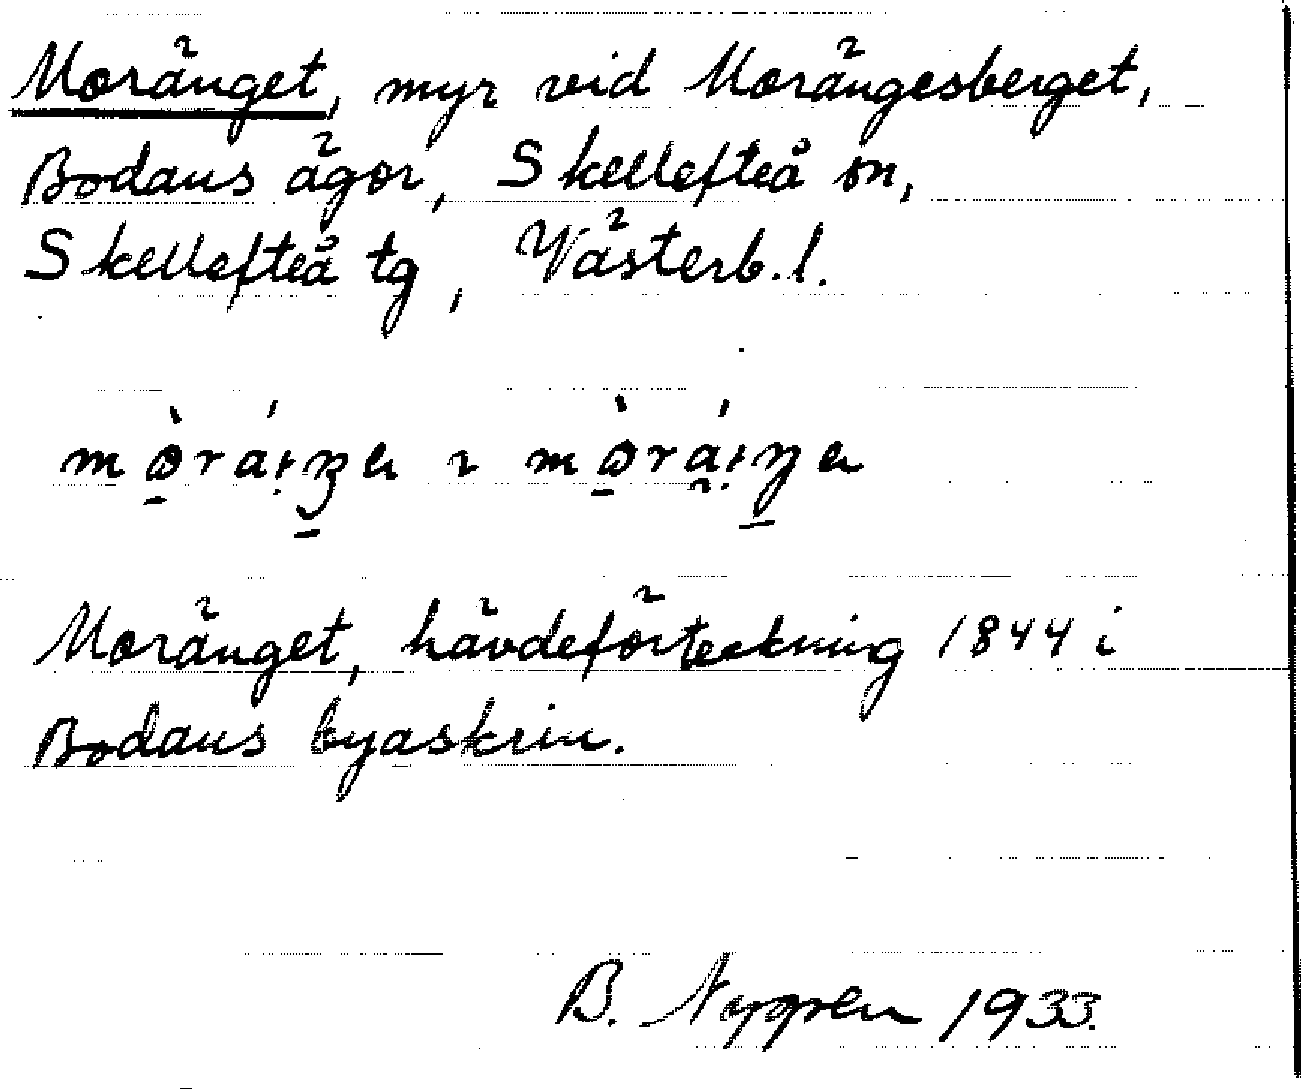 Moränget, myr vid Morängesberget,
Bodans ägor, Skellefteå sn,
Skellefteå tg, Västerb. l.
Moränget, hävdeförteckning 1844 i
Bodans byaskrin.
B. Nygren 1933.